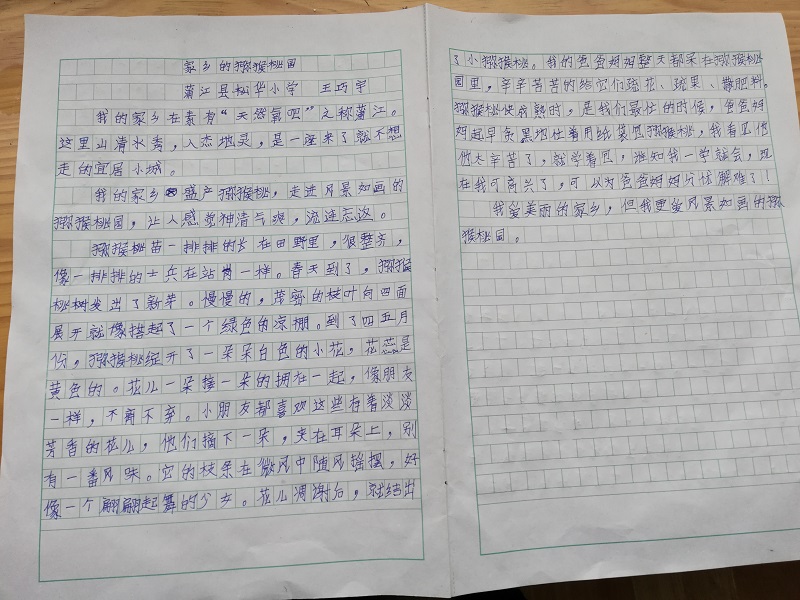 家乡的猕猴桃园
蒲江县松华小学 王巧宇
我的家乡在素有“天然氧吧”之称蒲江。
这里山清水秀，人杰地灵，是一座来了就不想
走的宜居小城。
我的家乡盛产猕猴桃，走进风景如画的
猕猴桃园，让人感觉神清气爽，流连忘返。
猕猴桃苗一排排的长在田野里，很整齐，
像一排排的士兵在站岗一样。春天到了，猕猴
桃树发出了新芽。慢慢的，茂密的枝叶向四面
展开就像搭起了一个绿色的凉棚。到了四五月
份，猕猴桃绽开了一朵朵白色的小花，花蕊是
黄色的。花儿一朵接一朵的拥在一起，像朋友
一样，不离不弃。小朋友都喜欢这些有着淡淡
芳香的花儿，他们摘下一朵，夹在耳朵上，别
有一番风味。它的枝条在微风中随风摇摆，好
像一个翩翩起舞的少女。花儿凋谢后，就结出
了小猕猴桃。我的爸爸妈妈整天都呆在猕猴桃
园里，辛辛苦苦的给它们疏花、疏果、撒肥料。
猕猴桃快成熟时，是我们最忙的时候，爸爸妈
妈起早贪黑地忙着用纸袋包猕猴桃，我看见他
们太辛苦了，就学着包，谁知我一学就会，现
在我可高兴了，可以为爸爸妈妈分忧解难了！
我爱美丽的家乡，但我更爱风景如画的猕
猴桃园。